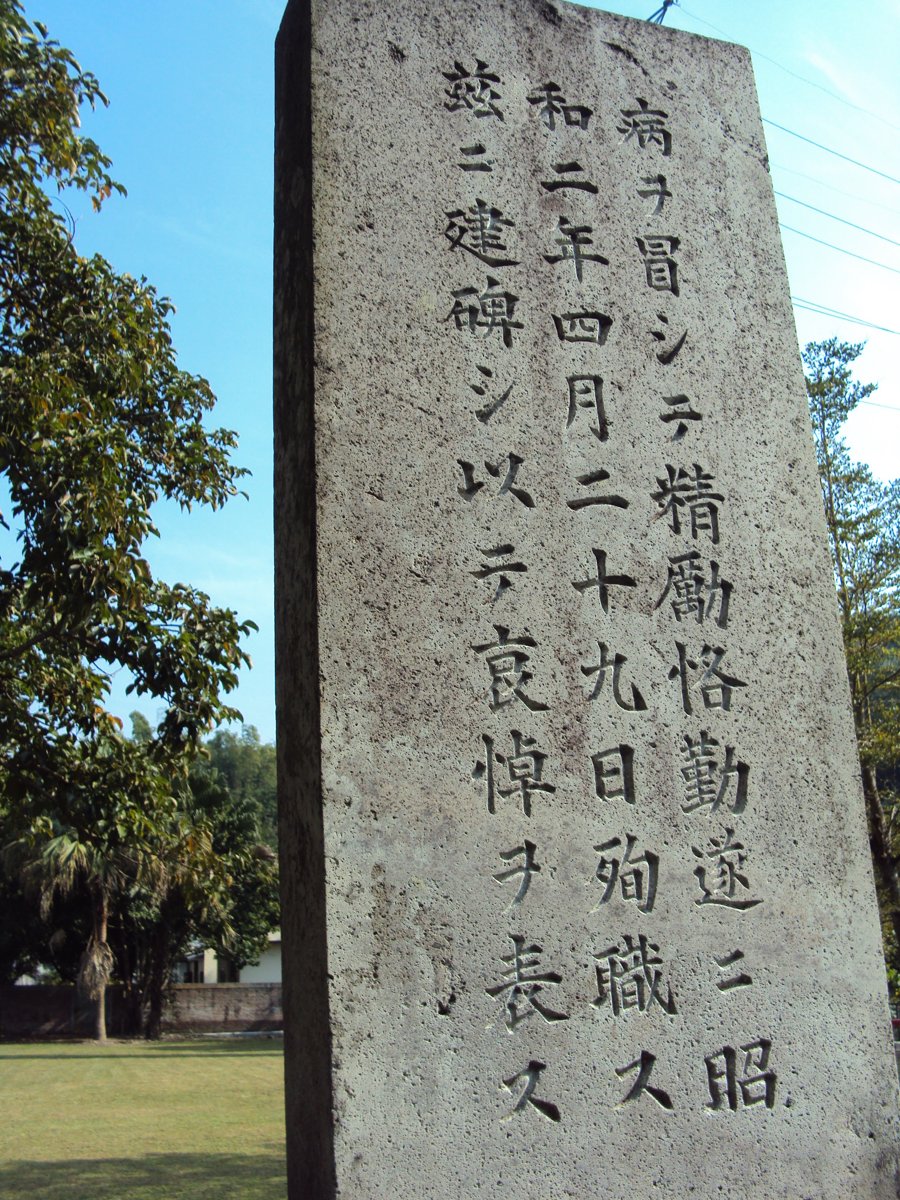 病ヲ冒シテ精励恪勤遂ニ昭
和二年四月二十九日殉職ス
茲ニ建碑シ以テ哀悼ヲ表ス